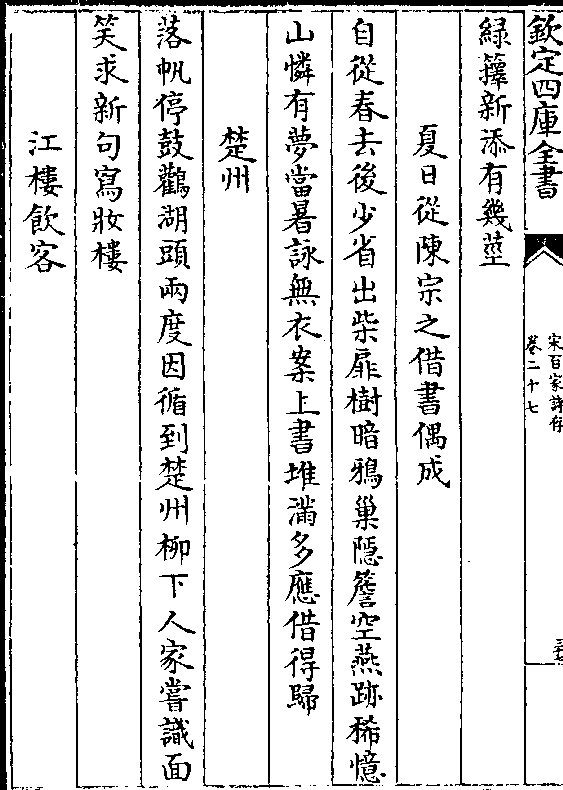 欽定四庫全書
宋百家詩存
卷二十七
綠籜新添有幾莖
夏日從陳宗之借書偶成
自從春去後少省出柴扉樹暗鴉巢隱簷空燕跡稀憶
山憐有夢當暑詠無衣案上書堆滿多應借得歸
楚州
落帆停鼓鸛湖頭兩度因循到楚州柳下人家嘗識面
笑求新句寫妝樓
江樓飲客